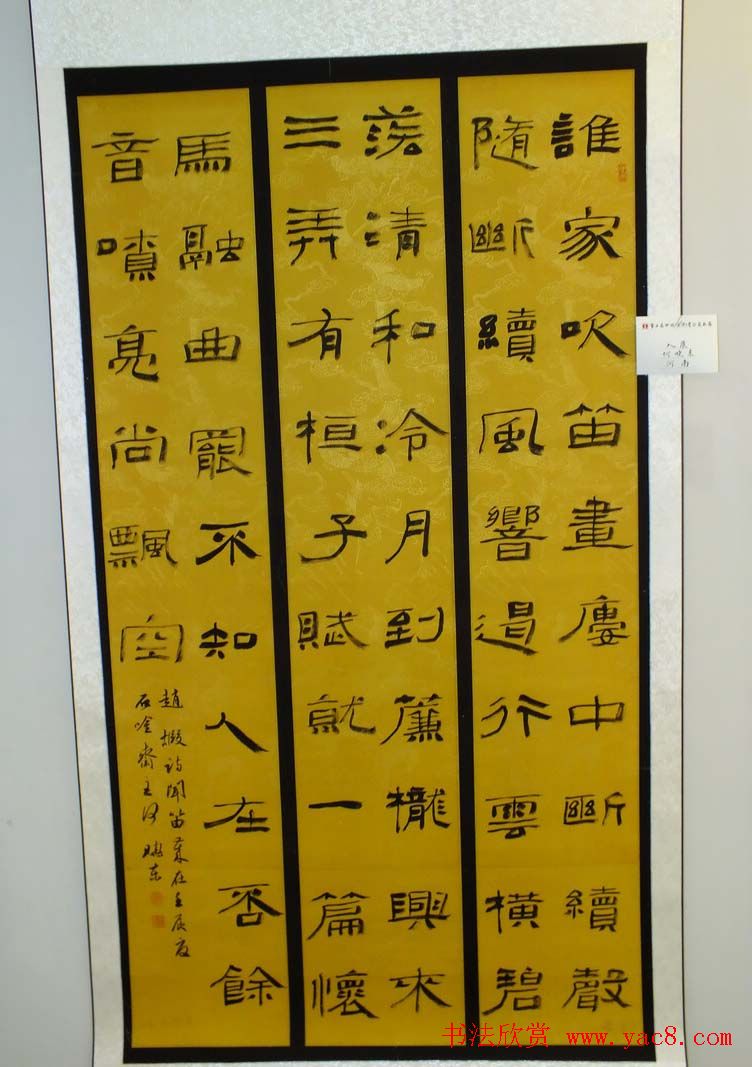 誰家吹笛畫廔中斷續聲
隨斷續風響遏行雲橫碧
落清和冷月到簾櫳興來
三弄有桓子賦就一篇懷
馬融曲罷不知人在否餘
音嘹亮尚飄空
趙嘏詩聞笛在壬辰夏
石唫齋主何曉东
入展
何晓东
河南
书法欣赏 www.yac8.com